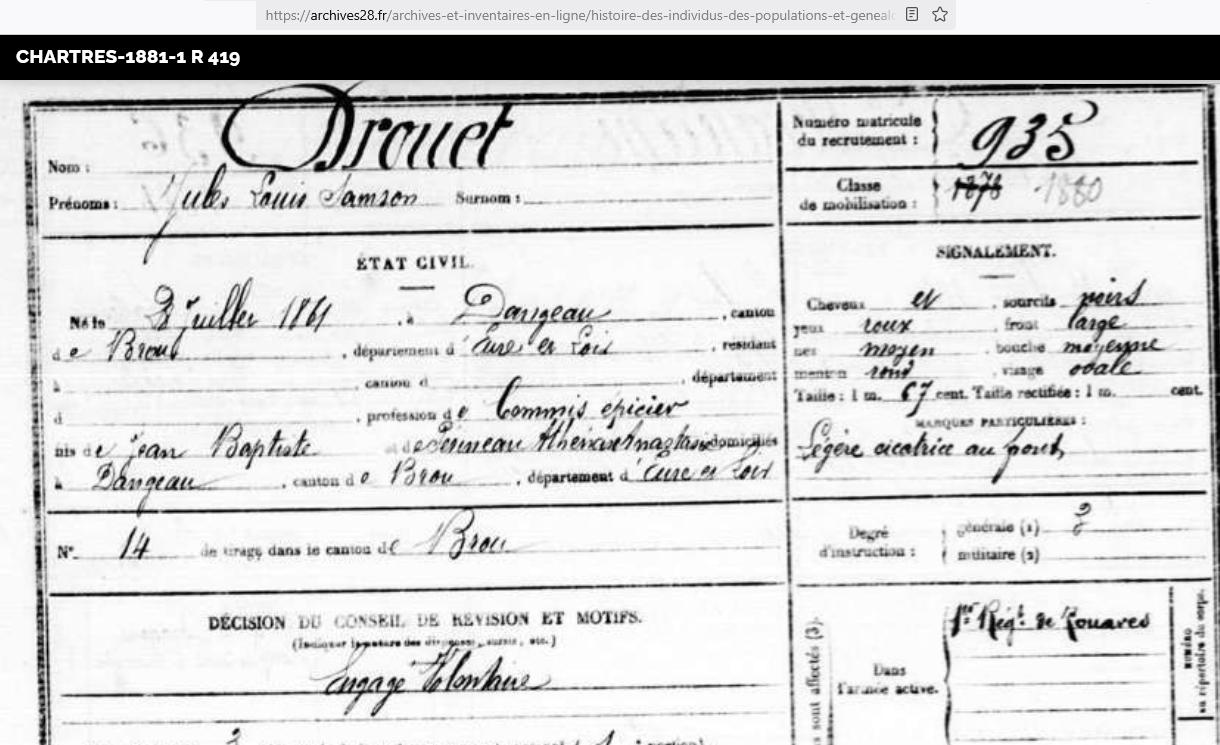 https://archives28.fr/archives-et-inventaires-en-ligne/histoire-des-individus-des-populations-et-geneal
CHARTRES-1881-1 R 419
Nom : Drouet
Prénoms : Jules Louis Samson Surnom :
ÉTAT CIVIL.
Né le 3 Juillet 1861, à Dangeau, canton
de Brou, département d'Eure et Loir, résidant
à , canton d , département
d , profession de Commis épicier
fils de Jean Baptiste et de domiciliés
à Dangeau, canton de Brou, département d'Eure et Loir
N° 14 de tirage dans le canton de Brou
DÉCISION DU CONSEIL DE RÉVISION ET MOTIFS.
(Indiquer la nature des dispenses, sursis, etc.)
Engagé Volontaire
Numéro matricule
du recrutement : 935
Classe
de mobilisation : 1878 1880
SIGNALEMENT.
Cheveux et , sourcils noirs
yeux roux , front large
nez moyen , bouche moyenne
menton rond , visage ovale
Taille : 1 m. 67 cent. Taille rectifiée : 1 m. cent.
MARQUES PARTICULIÈRES :
Légère cicatrice au front
Degré
d'instruction :
générale (1) 3
militaire (2)
Dans
l'armée active.
1er Régt de Zouaves
sont affectés (3).
NUMÉRO
au répertoire du corps.